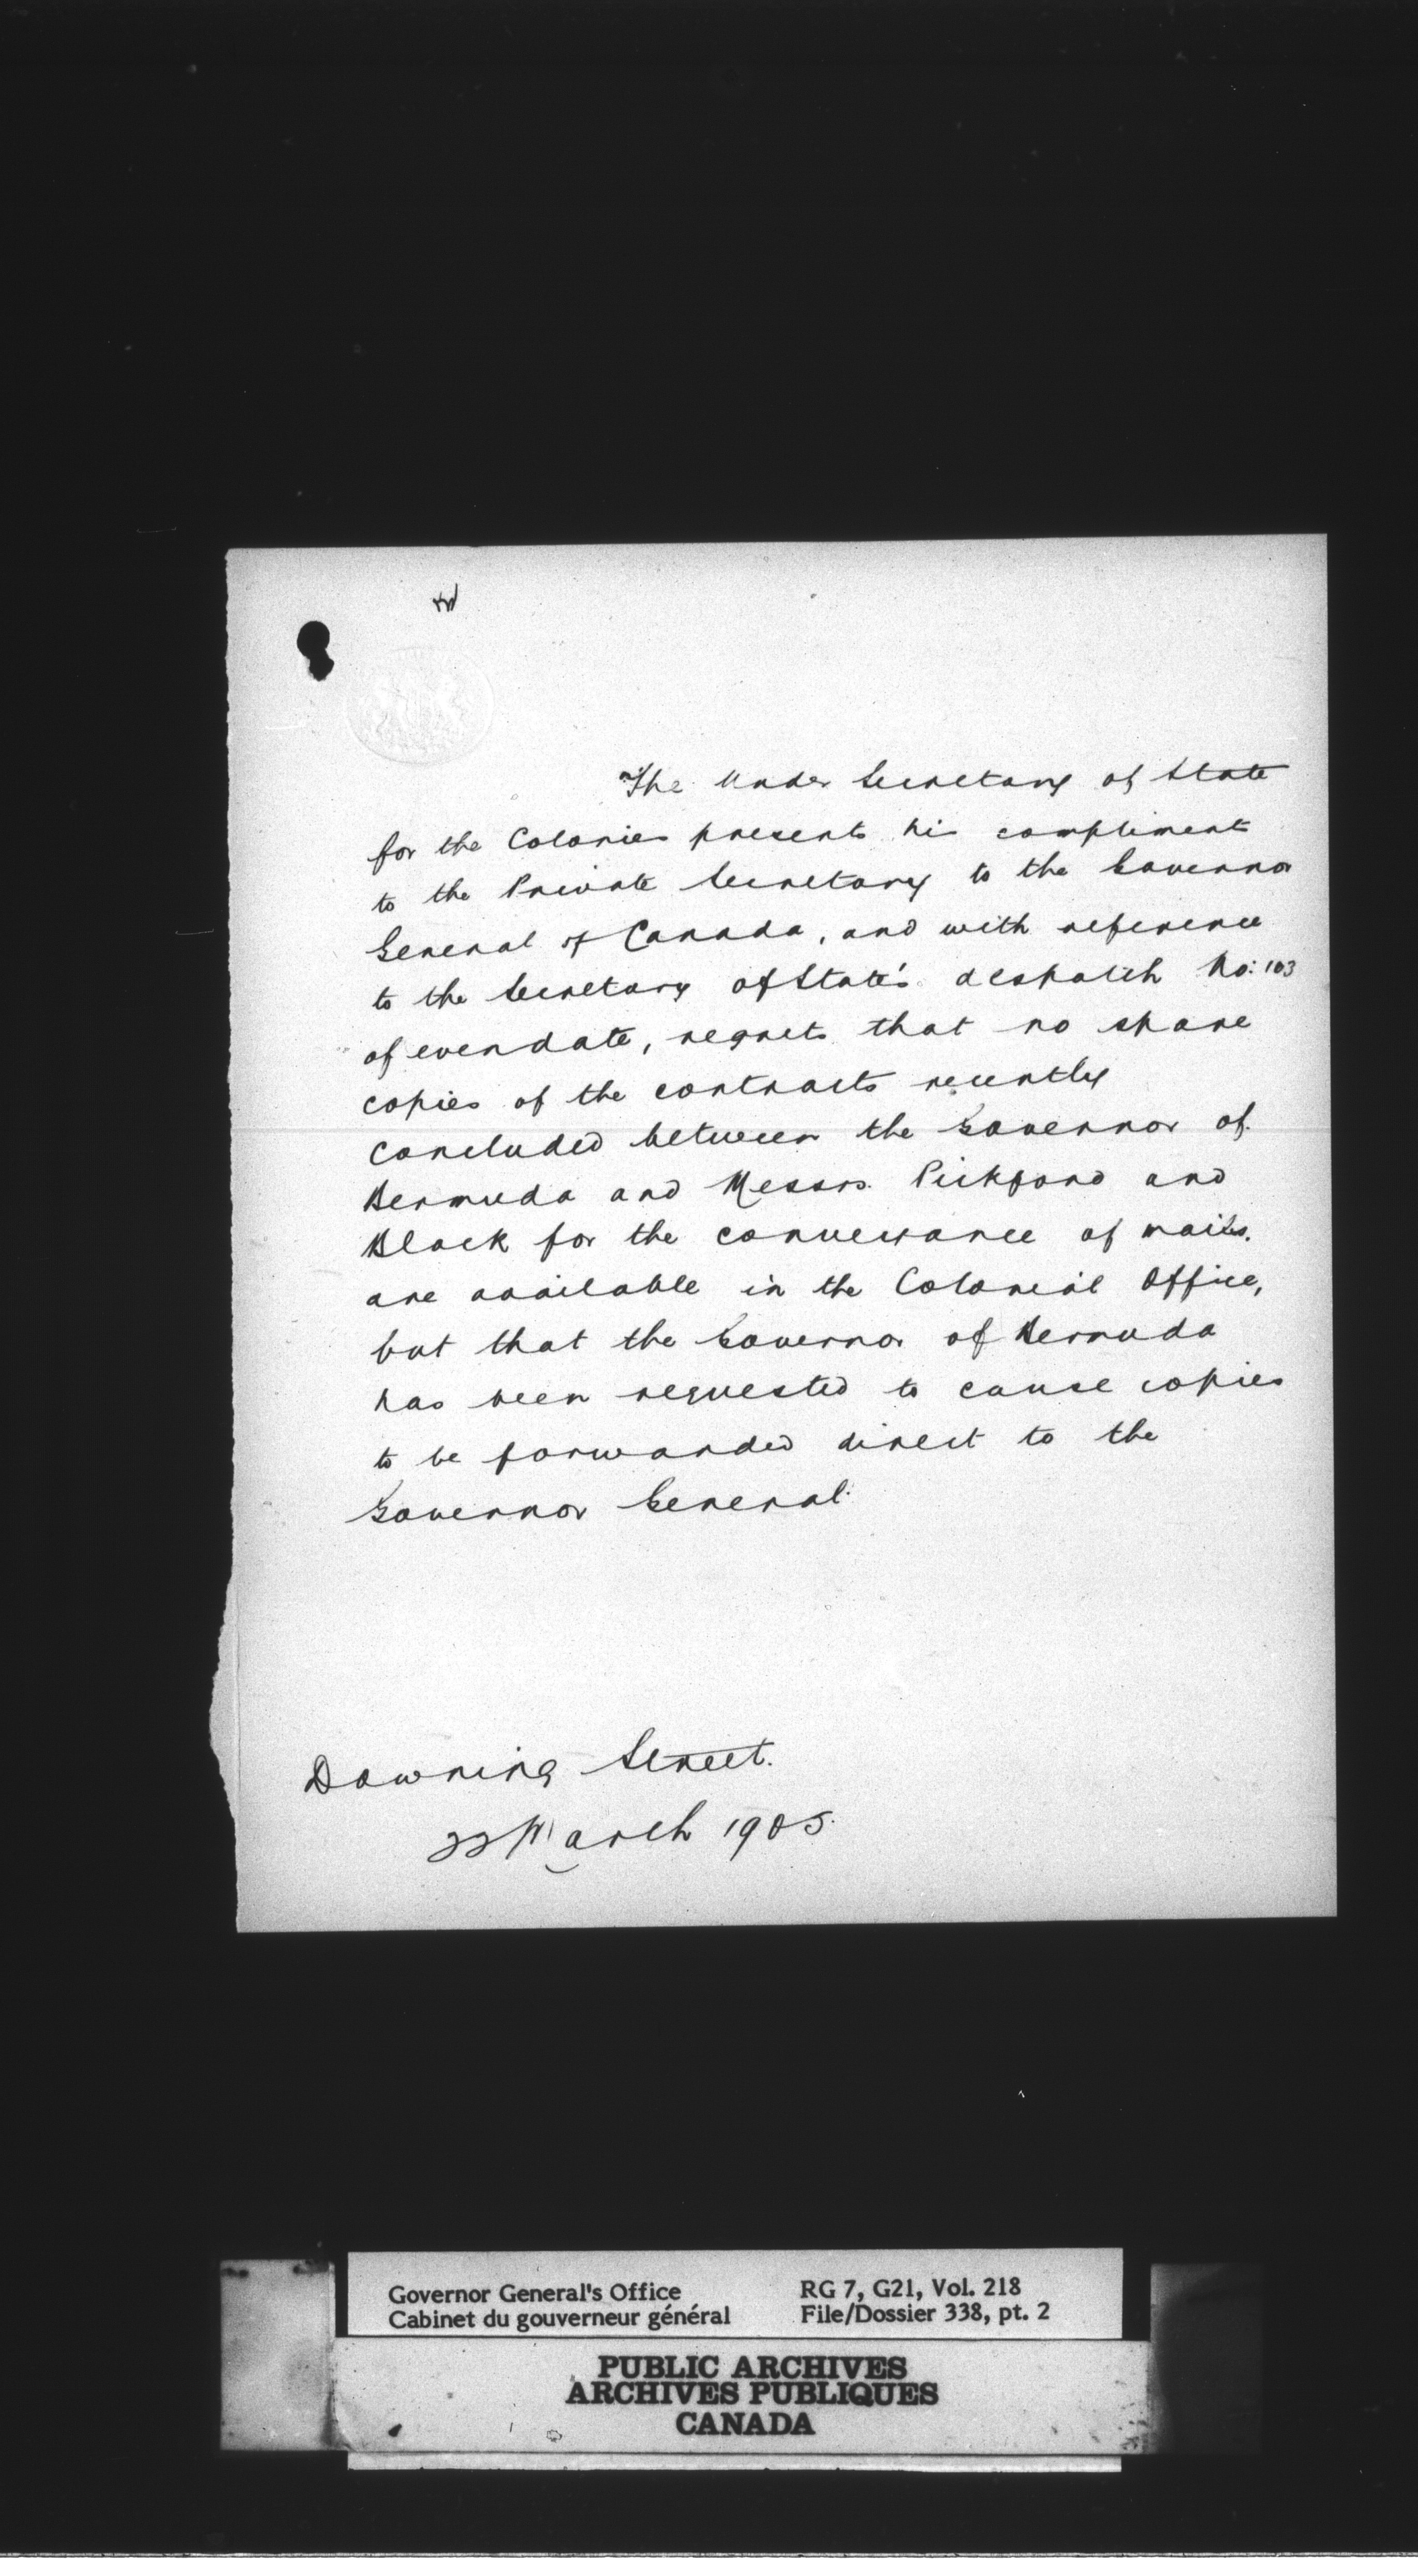 The Under Secretary of State
for the Colonies presents his compliments
to the Private Secretary to the Governor
General of Canada, and with reference
to the Secretary of State's despatch No: 103
of even date, regrets that no spare
copies of the contracts recently
concluded between the Governor of
Bermuda and Messrs. Pickford and
Black for the conveyance of mails.
are available in the Colonial Office,
but that the Governor of Bermuda
has been requested to cause copies
to be forwarded direct to the
Governor General.
Downing Street.
22 March 1905.
Governor General's Office
Cabinet du gouverneur général
RG 7, G21, Vol. 218
File/Dossier 338, pt. 2
PUBLIC ARCHIVES
ARCHIVES PUBLIQUES
CANADA